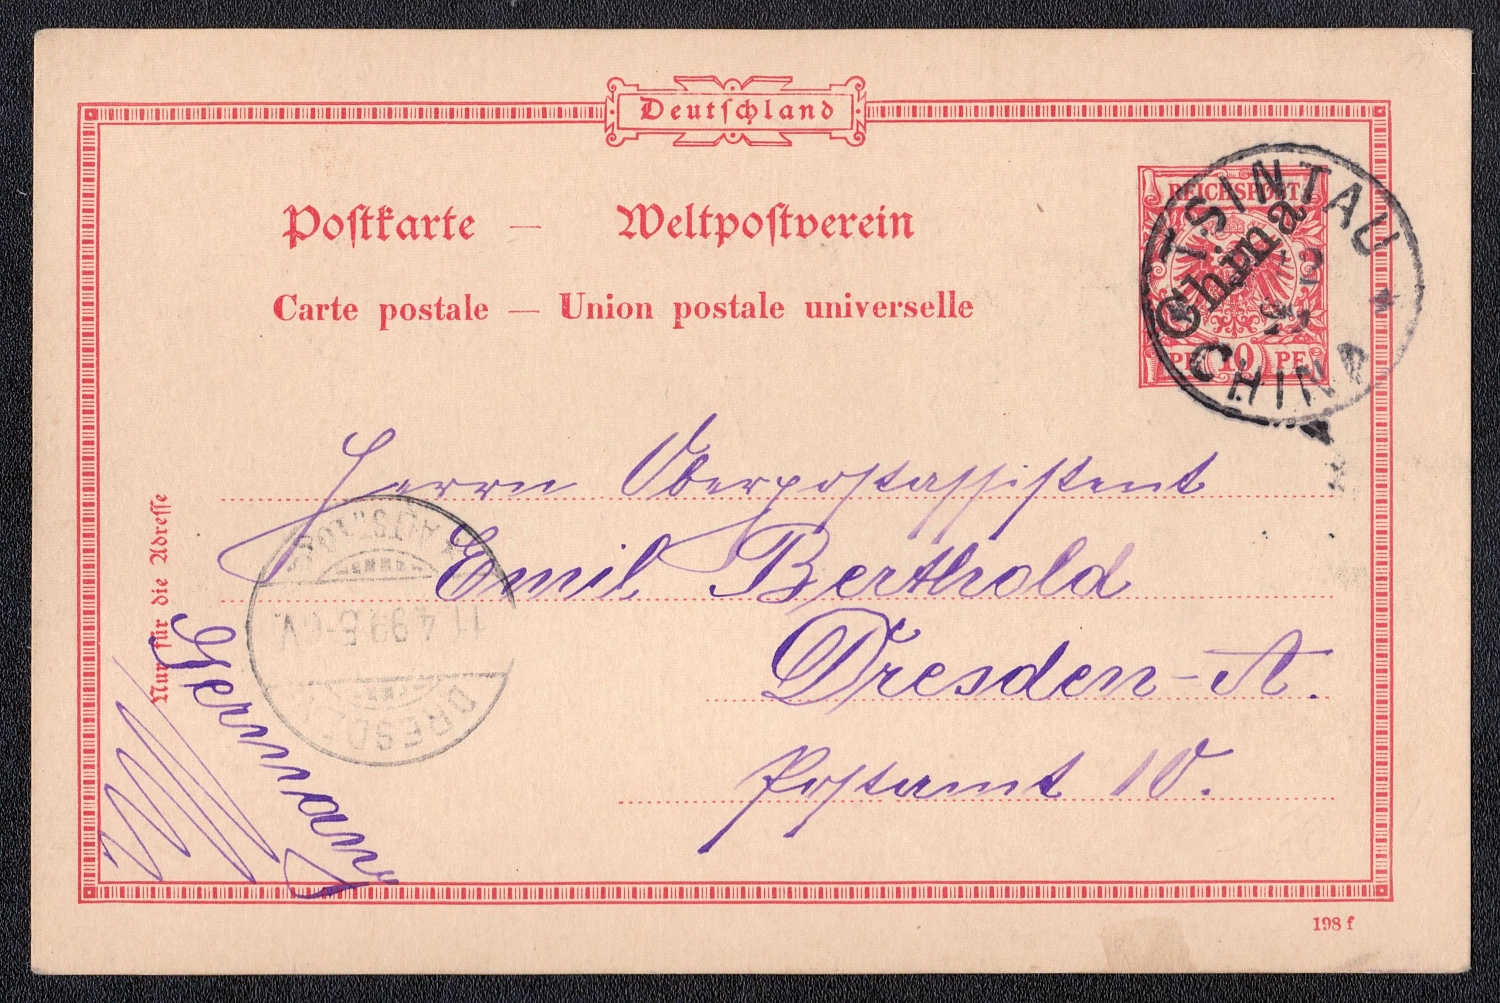 Deutschland
Postkarte — Weltpostverein
Carte postale — Union postale universelle
REICHSPOST
China
PF 10 PF
TSINTAU
CHINA
Herrn Oberpostassistent
Emil Berthold
Dresden-A.
Postamt 10.
Nur für die Adresse
Germany
DRESDEN
ALTSTADT
11.4.99.5-6V.
198 f